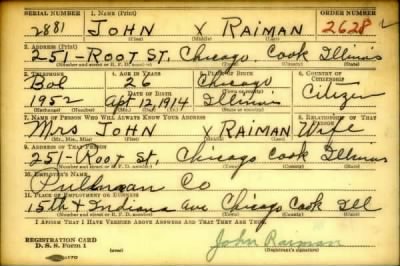 SERIAL NUMBER 1. NAME (Print) ORDER NUMBER
2881 JOHN X RAIMAN 2628
(First) (Middle) (Last)
2. ADDRESS (Print)
251-ROOT ST. Chicago, Cook Illinois
(Number and street or R. F. D. number) (Town) (County) (State)
3. TELEPHONE 4. AGE IN YEARS 5. PLACE OF BIRTH 6. COUNTRY OF CITIZENSHIP
Bol 26 Chicago
DATE OF BIRTH Citizen
1952 Apr 12, 1914 Illinois
(Exchange) (Number) (Mo.) (Day) (Yr.) (State or country)
7. NAME OF PERSON WHO WILL ALWAYS KNOW YOUR ADDRESS 8. RELATIONSHIP OF THAT PERSON
Mrs JOHN X RAIMAN Wife
(Mr., Mrs., Miss) (First) (Middle) (Last)
9. ADDRESS OF THAT PERSON
251-ROOT St, Chicago Cook Illinois
(Number and street or R. F. D. number) (Town) (County) (State)
10. EMPLOYER'S NAME
Pullman Co
11. PLACE OF EMPLOYMENT OR BUSINESS
15th & Indiana ave Chicago Cook Ill
(Number and street or R. F. D. number) (Town) (County) (State)
I AFFIRM THAT I HAVE VERIFIED ABOVE ANSWERS AND THAT THEY ARE TRUE.
REGISTRATION CARD
D. S. S. Form 1 (over) John Raiman